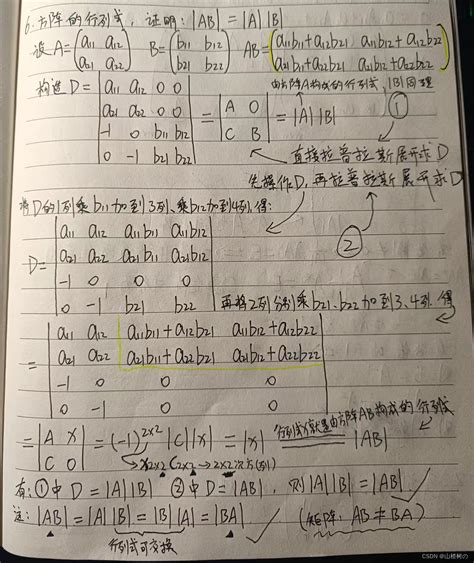 6.方阵的行列式,证明:|AB|=|A||B|
设A=(a11 a12 B=(b11 b12 AB=(a11b11+a12b21 a11b12+a12b22
a21 a22) b21 b22) a21b11+a22b21 a21b12+a22b22)
由方阵A构成的行列式,|B|同理
构造D=|a11 a12 0 0
a21 a22 0 0
-1 0 b11 b12
0 -1 b21 b22| =|A 0
C B| =|A||B| ①
直接拉普拉斯展开求D
先操作D,再拉普拉斯展开求D
将D的1列乘b11加到3列、乘b12加到4列,得: ②
D=|a11 a12 a11b11 a11b12
a21 a22 a21b11 a21b12
-1 0 0 0
0 -1 b21 b22| 再将2列分别乘b21、b22加到3、4列,得
=|a11 a12 a11b11+a12b21 a11b12+a12b22
a21 a22 a21b11+a22b21 a21b12+a22b22
-1 0 0 0
0 -1 0 0|
=|A X
C 0| =(-1)^2×2|C||X|=|X| 行列式X就是由方阵AB构成的行列式 |AB|
有:①中D=|A||B| ②中D=|AB|,则|A||B|=|AB|
注:|AB|=|A||B|=|B||A|=|BA| (矩阵:AB≠BA)
行列式可交换
CSDN @山楂树の